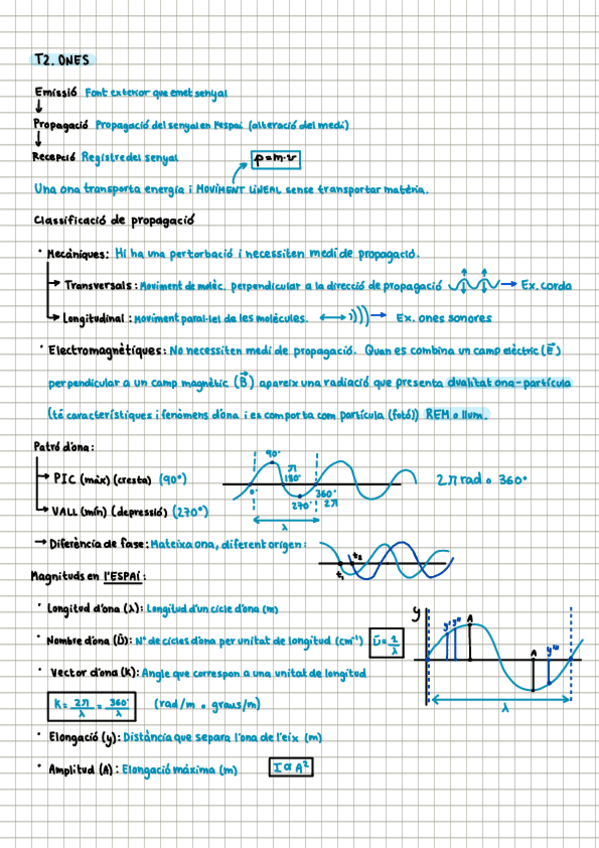 T2. ONES
Emissió Font exterior que emet senyal
↓
Propagació Propagació del senyal en l'espai (alteració del medi)
↓
Recepció Registre del senyal
p=m·v
Una ona transporta energia i MOVIMENT LINEAL sense transportar matèria.
Classificació de propagació
· Mecàniques: Hi ha una pertorbació i necessiten medi de propagació.
→ Transversals: Moviment de molèc. perpendicular a la direcció de propagació → Ex. corda
→ Longitudinal: Moviment paral·lel de les molècules. ↔ → Ex. ones sonores
· Electromagnètiques: No necessiten medi de propagació. Quan es combina un camp elèctric (E⃗)
perpendicular a un camp magnètic (B⃗) apareix una radiació que presenta dualitat ona-partícula
(té característiques i fenòmens d'ona i es comporta com partícula (fotó)) REM o llum.
Patró d'ona:
→ PIC (màx) (cresta) (90°)
→ VALL (mín) (depressió) (270°)
90°
π
180°
0°
270°
360°
2π
λ
2π rad o 360°
→ Diferència de fase: Mateixa ona, diferent origen:
t₁
t₂
Magnituds en l'ESPAI:
· Longitud d'ona (λ): Longitud d'un cicle d'ona (m)
· Nombre d'ona (Ũ): Nº de cicles d'ona per unitat de longitud (cm⁻¹) ũ=1/λ
· Vector d'ona (K): Angle que correspon a una unitat de longitud
K = 2π/λ = 360°/λ (rad/m o graus/m)
· Elongació (y): Distància que separa l'ona de l'eix (m)
· Amplitud (A): Elongació màxima (m) I α A²
y
y'
y''
A
A
y'''
λ